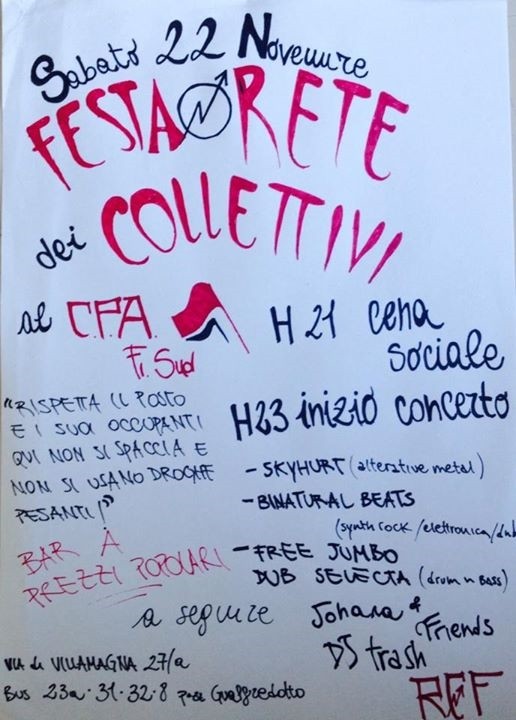 Sabato 22 Novembre
FESTA RETE
dei COLLETTIVI
al C.P.A.
Fi. Sud
H 21 cena
sociale
H23 inizio concerto
"RISPETTA IL POSTO
E I SUOI OCCUPANTI
QUI NON SI SPACCIA E
NON SI USANO DROGHE
PESANTI!"
BAR A
PREZZI POPOLARI
- SKYHURT (alterative metal)
- BINATURAL BEATS
(synth rock / elettronica / dub
- FREE JUMBO
DUB SELECTA (drum n bass)
a seguire
Johana & Friends
DJ trash
VIA di VILLAMAGNA 27/a
Bus 23a · 31 · 32 · 8
RCF